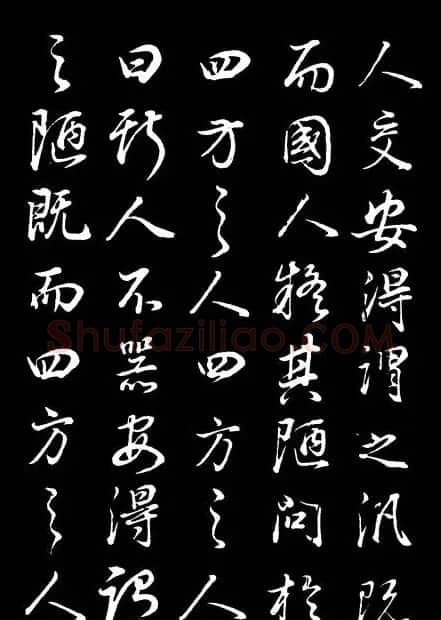 人交安得謂之汎既
而國人疑其陋問於
四方之人四方之人
曰斯人不器安得謂
之陋既而四方之人
Shufaziliao.COM